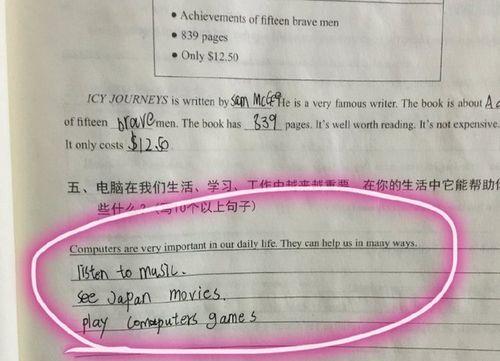 • Achievements of fifteen brave men
• 839 pages
• Only $12.50
ICY JOURNEYS is written by Sam McGe He is a very famous writer. The book is about A
of fifteen brave men. The book has 839 pages. It's well worth reading. It's not expensive.
It only costs $12.50
五、电脑在我们生活、学习、工作中越来越重要，在你的生活中它能帮助
些什么？（写10个以上句子）
Computers are very important in our daily life. They can help us in many ways.
listen to music.
see Japan movies.
play comaputers games